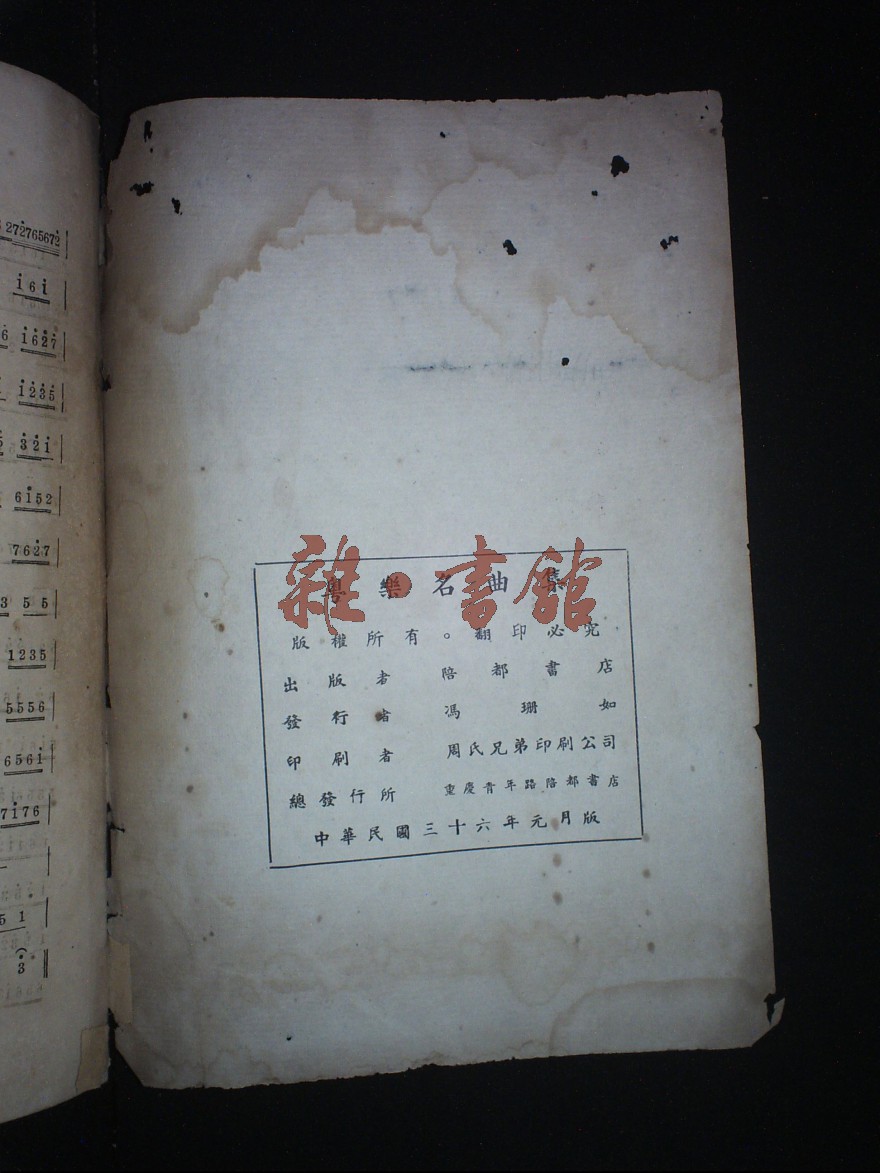 272765672
i6i
6 i627
i235
5 32i
6i52
7627
3 5 5
1235
5556
656i
7i76
5 1
3
粤樂名曲集
版權所有。翻印必究
出版者 陪都書店
發行者 馮珊如
印刷者 周氏兄弟印刷公司
總發行所 重慶青年路陪都書店
中華民國三十六年元月版
雜·書館